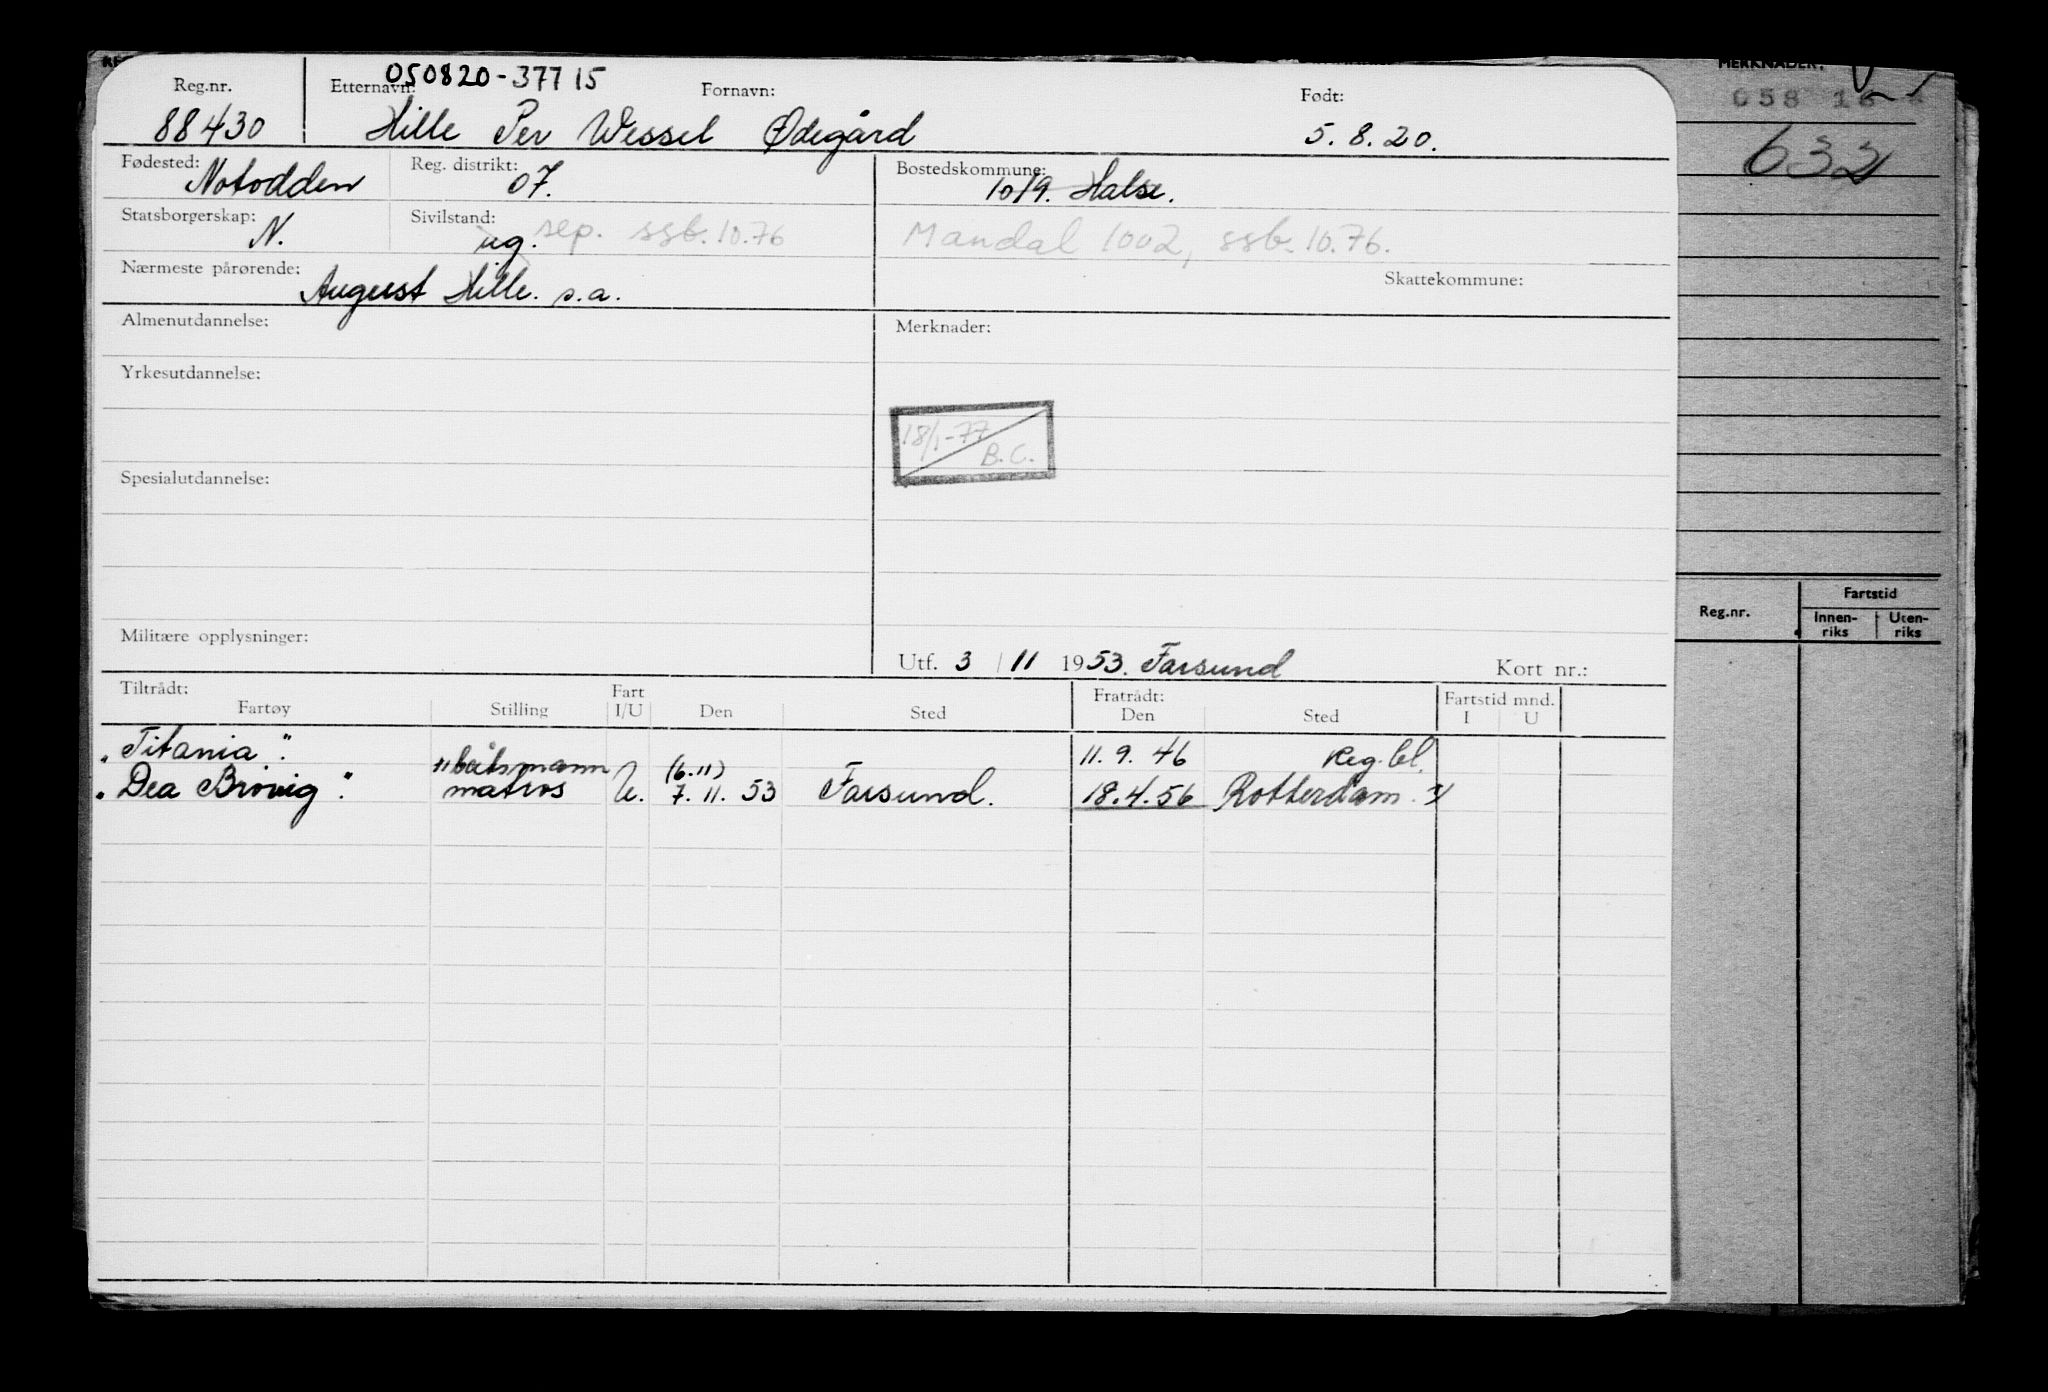 050820-37715
Reg.nr. Etternavn: Fornavn: Født:
88430 Hille Per Wessel Ødegård 5.8.20.
Fødested: Reg. distrikt: Bostedskommune:
Notodden 07. 1019. Halse.
Statsborgerskap: Sivilstand:
N. ug. sep. ssb. 10.76 Mandal 1002, ssb. 10.76.
Nærmeste pårørende: Skattekommune:
August Hille. s.a.
Almenutdannelse: Merknader:
Yrkesutdannelse:
18/1-77
B.C.
Spesialutdannelse:
Militære opplysninger:
Utf. 3 / 11 1953. Farsund Kort nr.:
Tiltrådt: Fart Fratrådt: Fartstid mnd.
Fartøy Stilling I/U Den Sted Den Sted I U
"Titania". båtsmann 11.9.46 Reg.bl.
"Dea Brøvig". matros U. (6.11) 7.11.53 Farsund. 18.4.56 Rotterdam.
MERKNADER:
058 16
632
Reg.nr. Fartstid
Innen-riks Uten-riks